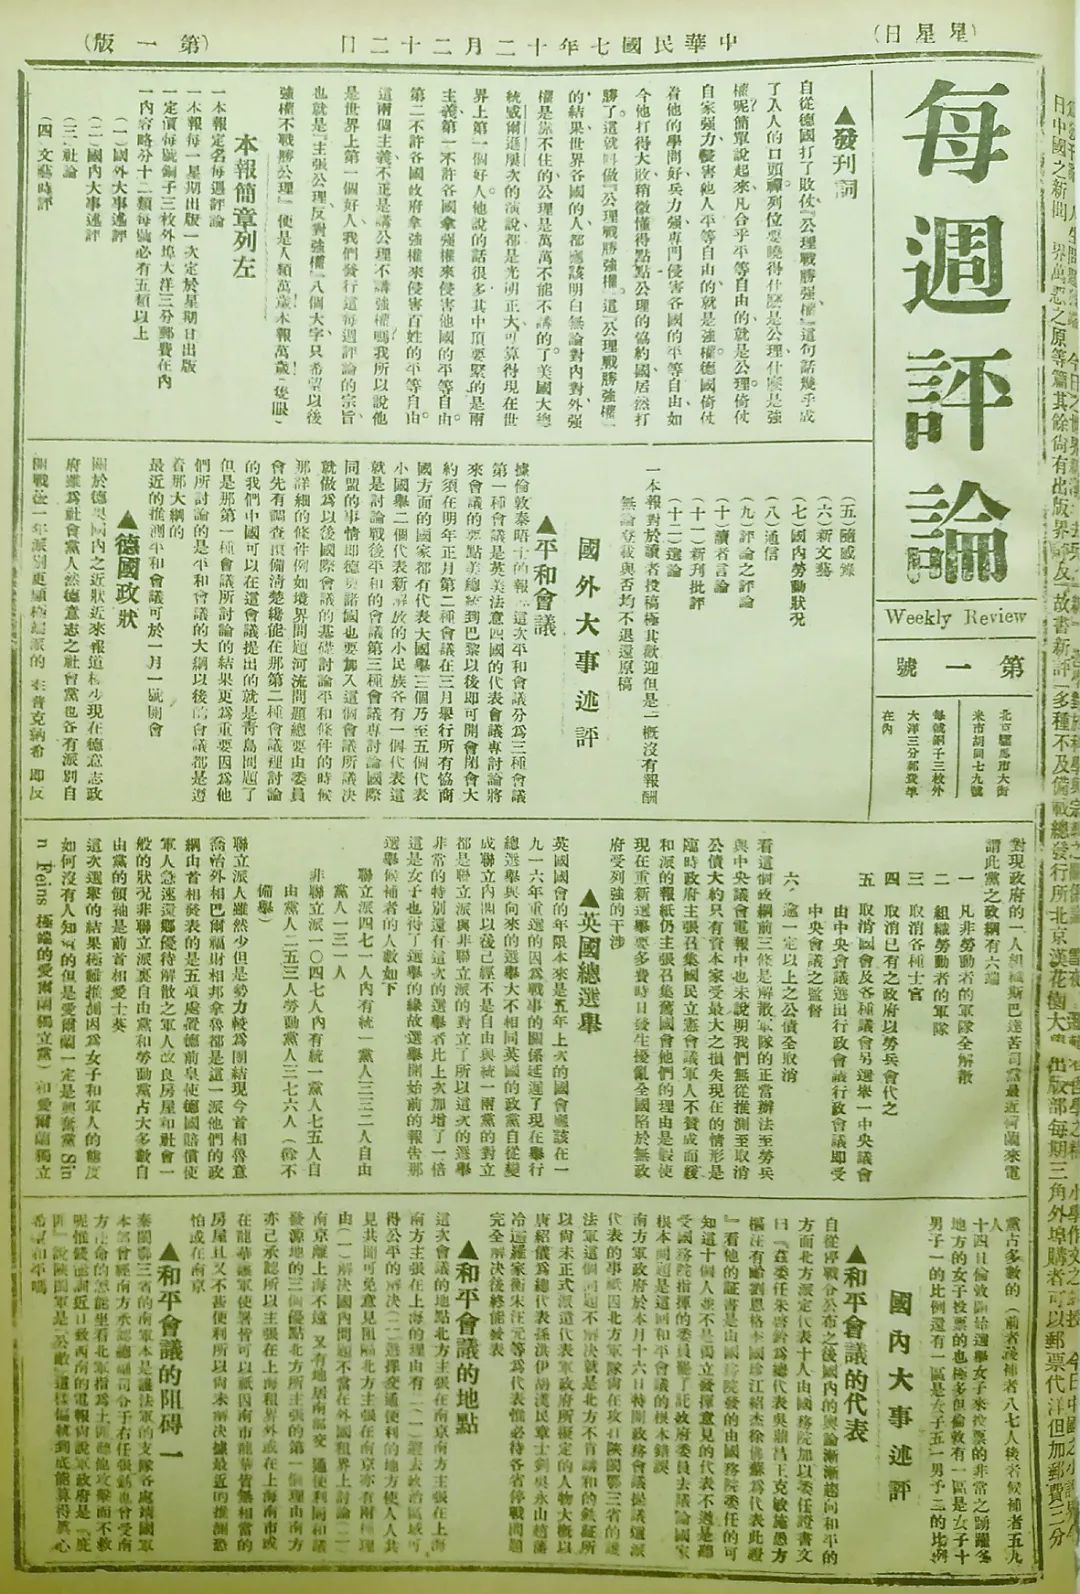 (日星星)
中華民國七年十二月二十二日
(第一版)
每週評論
Weekly Review
第一號
北京騾馬市大街
米市胡同七九號
每號銅子三枚外
大洋三分郵費準
在內
▲發刊詞
自從德國打了敗仗『公理戰勝強權』這句話幾乎成
了人人的口頭禪列位要曉得什麼是公理什麼是強
權呢簡單說起來凡合乎平等自由的就是公理倚仗
自家強力侵害他人平等自由的就是強權德國倚仗
着他的學問好兵力強專門侵害各國的平等自由如
今他打得大敗稍微懂得點點公理的協約國居然打
勝了這就叫做『公理戰勝強權』這『公理戰勝強權』
的結果世界各國的人都應該明白無論對內對外強
權是靠不住的公理是萬萬不能不講的了美國大總
統威爾遜屢次的演說都是光明正大可算得現在世
界上第一個好人他說的話很多其中頂要緊的是兩
主義第一不許各國拿強權來侵害他國的平等自由
第二不許各國政府拿強權來侵害百姓的平等自由
這兩個主義不正是講公理不講強權嗎我所以說他
是世界上第一個好人我們發行這每週評論的宗旨
也就是『主張公理反對強權』八個大字只希望以後
強權不戰勝公理』便是人類萬歲本報萬歲(隻眼)
本報簡章列左
一本報定名每週評論
一本報每一星期出版一次定於星期日出版
一定價每號銅子三枚外埠大洋三分郵費在內
一內容略分十二類每號必有五類以上
(一)國外大事述評
(二)國內大事述評
(三)社論
(四)文藝時評
(五)隨感錄
(六)新文藝
(七)國內勞動狀況
(八)通信
(九)評論之評論
(十)讀者言論
(十一)新刊批評
(十二)選論
一本報對於讀者投稿極其歡迎但是一概沒有報酬
無論登載與否均不退還原稿
國外大事述評
▲平和會議
據倫敦泰晤士的報這次平和會議分為三種會議
第一種會議是英美法意四國的代表會議專討論將
來會議的要點美總統到巴黎以後即可開會閉會大
約須在明年正月第二種會議在三月舉行所有協商
國方面的國家都有代表大國舉三個乃至五個代表
小國舉二個代表新解放的小民族各有一個代表這
就是討論戰後平和的會議第三種會議專討論國際
同盟的事情即德奧諸國也要加入這個會議所議決
就做為以後國際會議的基礎討論平和條件的時候
那詳細的條件例如境界問題河流問題總要由委員
會先有調查預備清楚纔能在那第二種會議裡討論
的我們中國可以在這會議提出的就是靑島問題了
但是那第一種會議所討論的結果更為重要因為他
們所討論的是平和會議的大綱以後的會議都是遵
着那大綱的
最近的推測平和會議可於一月一號開會
▲德國政狀
關於德奧國內之近狀近來報道極少現在德意志政
府雖為社會黨人然德意志之社會黨也各有派別自
開戰後一年派別更顯極端派的李普克納希即反
對現政府的一人組織斯巴達苦司黨最近荷蘭來電
謂此黨之政綱有六端
一 凡非勞動者的軍隊全解散
二 組織勞動者的軍隊
三 取消各種士官
四 取消已有之政府以勞兵會代之
五 取消國會及各種議會另選舉一中央議會
由中央會議選出行政會議行政會議即受
中央會議之監督
六、逾一定以上之公債全取消
看這個政綱前三條是解散軍隊的正當辦法至勞兵
與中央議會電報中也未說明我們無從推測至取消
公債大約只有資本家受最大之損失現在的情形是
臨時政府主張召集國民立憲會議軍人不贊成而緩
和派的報紙仍主張召集舊國會他們的理由是假使
現在重新選舉要多費時日發生擾亂全國陷於無政
府受列強的干涉
▲英國總選舉
英國國會的年限本來是五年上次的國會應該在一
九一六年重選的因為戰事的關係延遲了現在舉行
總選舉與向來的選舉大不相同英國的政黨自從變
成聯立內閣以後已經不是自由與統一兩黨的對立
都是聯立派與非聯立派的對立了所以這次的選舉
非常的特別還有這次的選舉者比上次加增了一倍
這是女子也得了選舉的緣故選舉開始前的報告那
選舉候補者的人數如下
聯立派四七一人內有統一黨人三三二人自由
黨人一三一人
非聯立派一〇四七人內有統一黨人七五人自
由黨人二五三人勞動黨人三七六人(餘不
備舉)
聯立派人雖然少但是勢力較為團結現今首相魯意
喬治外相巴爾福財相邦拿魯都是這一派他們的政
綱由首相發表的是五項處置德前皇使德國賠償使
軍人急速還鄉優待解散之軍人改良房屋和社會一
般的狀況非聯立派裏自由黨和勞動黨占大多數自
由黨的領袖是前首相愛士英
這次選舉的結果極難推測因為女子和軍人的態度
如何沒有人知道的但是愛爾蘭一定是興奮黨Sin
n Feins極端的愛爾蘭獨立黨)和愛爾蘭獨立
黨占多數的(前者後補者八七人後者候補者五九
人
十四日倫敦開始選舉女子來投票的非常之踴躍各
地方的女子投票的也極多但倫敦有一區是女子十
男子一的比例還有一區是女子五一男子二的比例
國內大事述評
▲和平會議的代表
自從停戰令公布之後國內的輿論漸漸趨向和平的
方面北方派定代表十人由國務院加以委任證書文
曰『茲委任朱啓鈐為總代表吳鼎昌王克敏施愚方
樞汪有齡劉恩格李國珍江紹杰徐佛蘇為代表此證
』看他的証書是由國務院發的由國務院委任的可
知這十個人並不是獨立發揮意見的代表不過是聽
受國務院指揮的委員罷了託政府委員去議論國家
根本問題是這回和平會議的根本錯誤
南方軍政府於本月十六日特開政務會議提議選派
代表的事祇因北方軍隊尚在攻打陝閩鄂三省的護
法軍這個問題不解決就是北方不肯講和的鉄証所
以尚未正式派遣代表軍政府所擬定的人物大概以
唐紹儀為總代表孫洪伊胡漢民章士釗吳永山趙藩
冷遹羅家衡朱汪元等為代表惟必待各省停戰問題
完全解決後終能發表
▲和平會議的地點
這次會議的地點北方主張在南京南方主張在上海
南方主張在上海的理由有(一)避去政治區域可
得公平的解決(二)選擇交通便利的地方使人人共
見共聞可免意見阻隔北方主張在南京亦有兩種理
由(一)解決國內問題不當在外國租界上討論(二)
南京離上海不遠又有地居南北交通便利開和議
發源地的三個優點北方所主張的第一個理由南方
亦已承認所以主張在上海租界外或在上海南市或
在龍華護軍使署皆可祇因南市龍華皆無相當的
房屋且又不甚便利所以尚未解決據最近的推測恐
怕或在南京
▲和平會議的阻碍一
秦閩鄂三省的南軍本是護法軍的支隊各處靖國軍
本部曾經南方承認總司令于右任張鈁也曾受南
方任命的怎能坐看北軍指為土匪聽他攻擊而不救